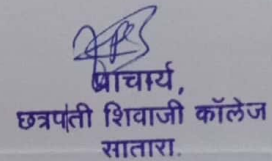 प्राचार्य,
छत्रपती शिवाजी कॉलेज
सातारा.